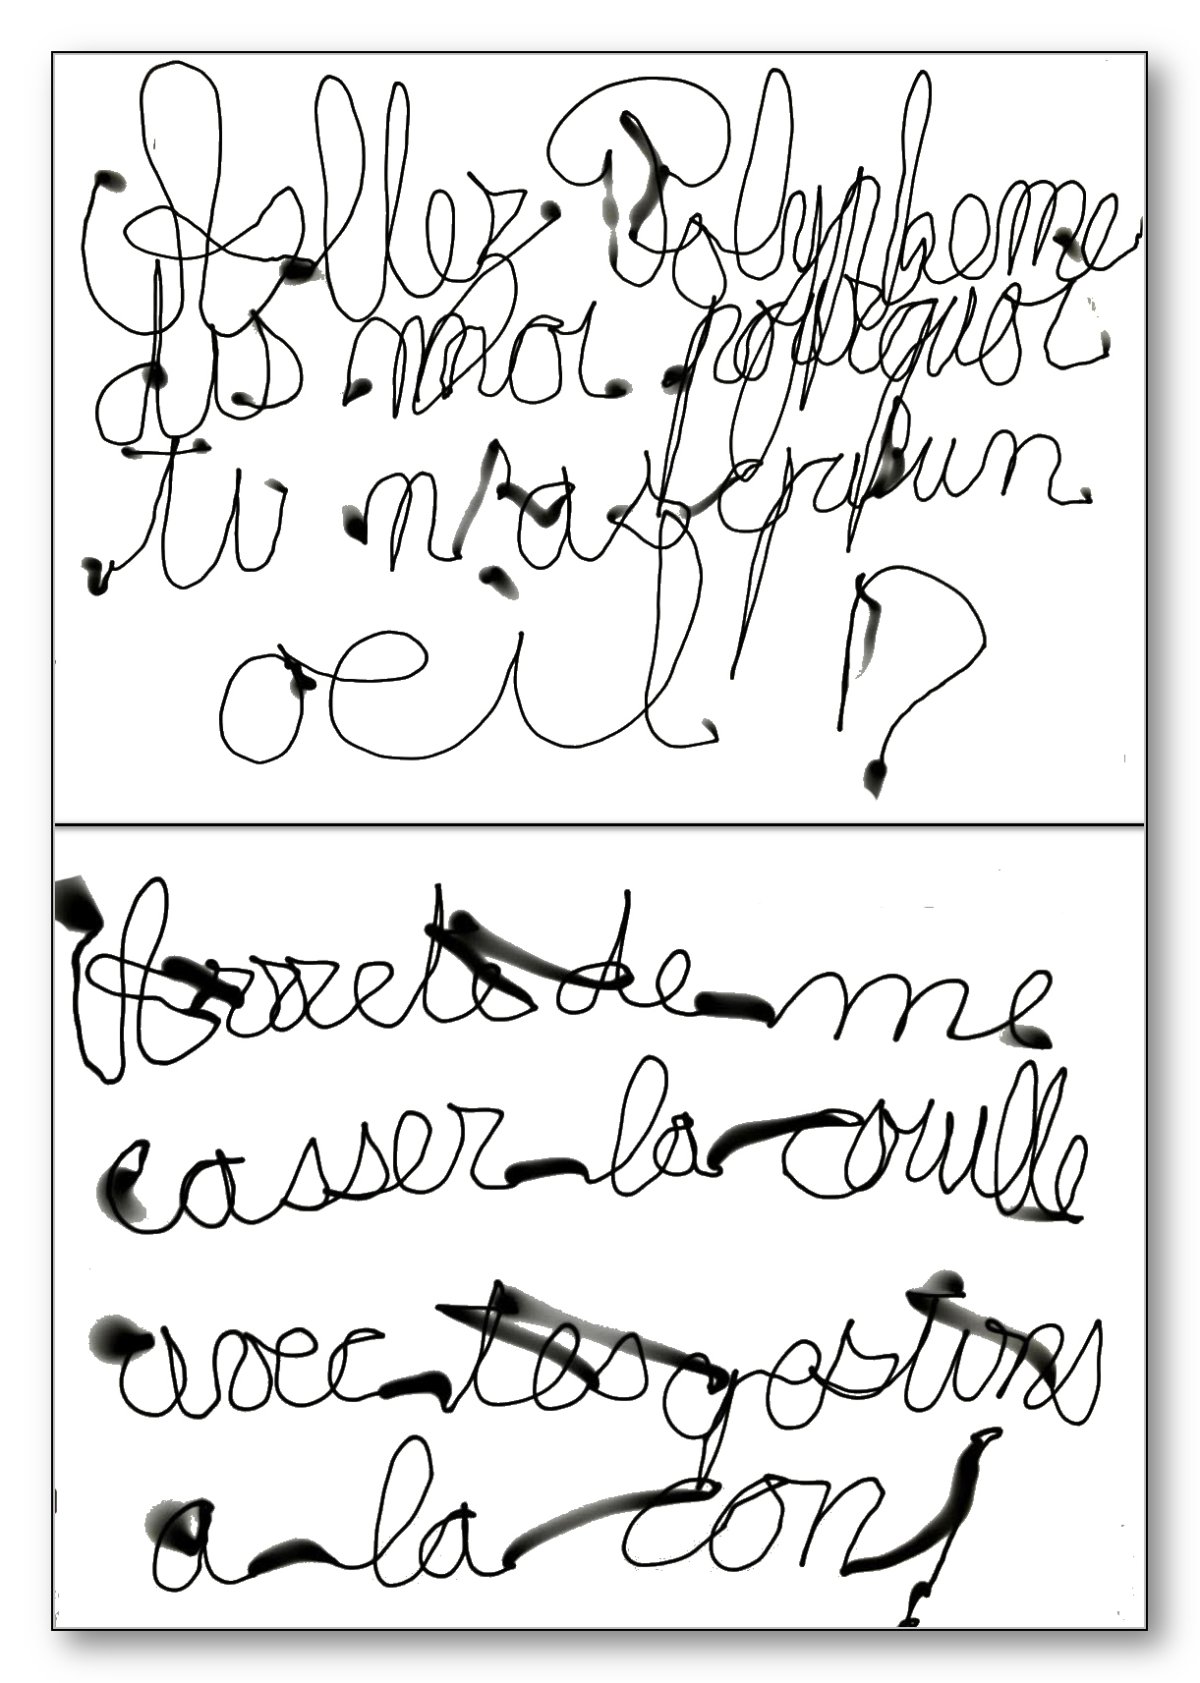 Allez Polypheme
dis moi pourquoi
tu n'as qu'un
oeil ?
Arrete de me
casser la couille
avec tes questions
a la con !